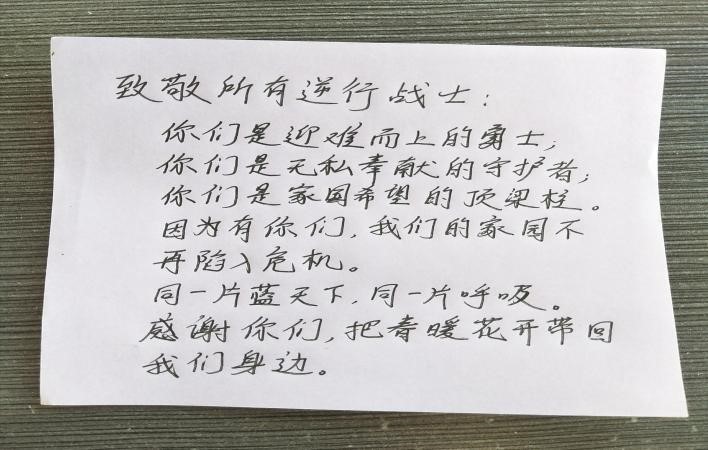 致敬所有逆行战士：
你们是迎难而上的勇士；
你们是无私奉献的守护者；
你们是家国希望的顶梁柱。
因为有你们，我们的家园不
再陷入危机。
同一片蓝天下，同一片呼吸。
感谢你们，把春暖花开带回
我们身边。